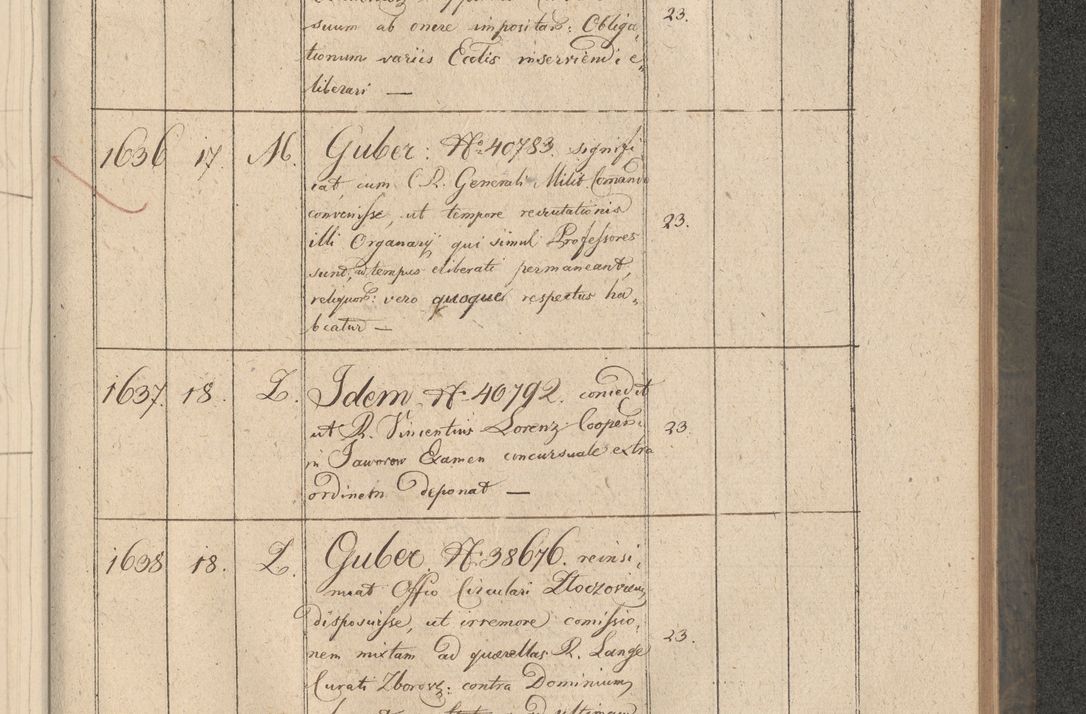 suum ab onere impositar: Obliga,
23.
tionum variis Ecclis inserviendi e,,
liberari —
1636 17 M. Guber: No 40783. signifi
cat cum C. R. Generali Milit. Comando
convenisse, ut tempore recrutationis
23.
illi Organarij qui simul Professores
sunt, in tempus eliberati permaneant,
reliquor: vero quoque respectus ha,,
beatur —
1637. 18. Z. Idem N. 40792. concedit
ut R. Vincentius Lorenz Cooper:
23
in Jaworow Examen concursuale extra
ordinem deponat —
1638 18. Z. Guber. N. 38676. reinsi,
nuat Offio Circulari Zloczoviens
disposuisse, ut irremore comissio,
23.
nem mixtam ad quaerellas R. Lange
Curati Zborov: contra Dominium
ad ultimam